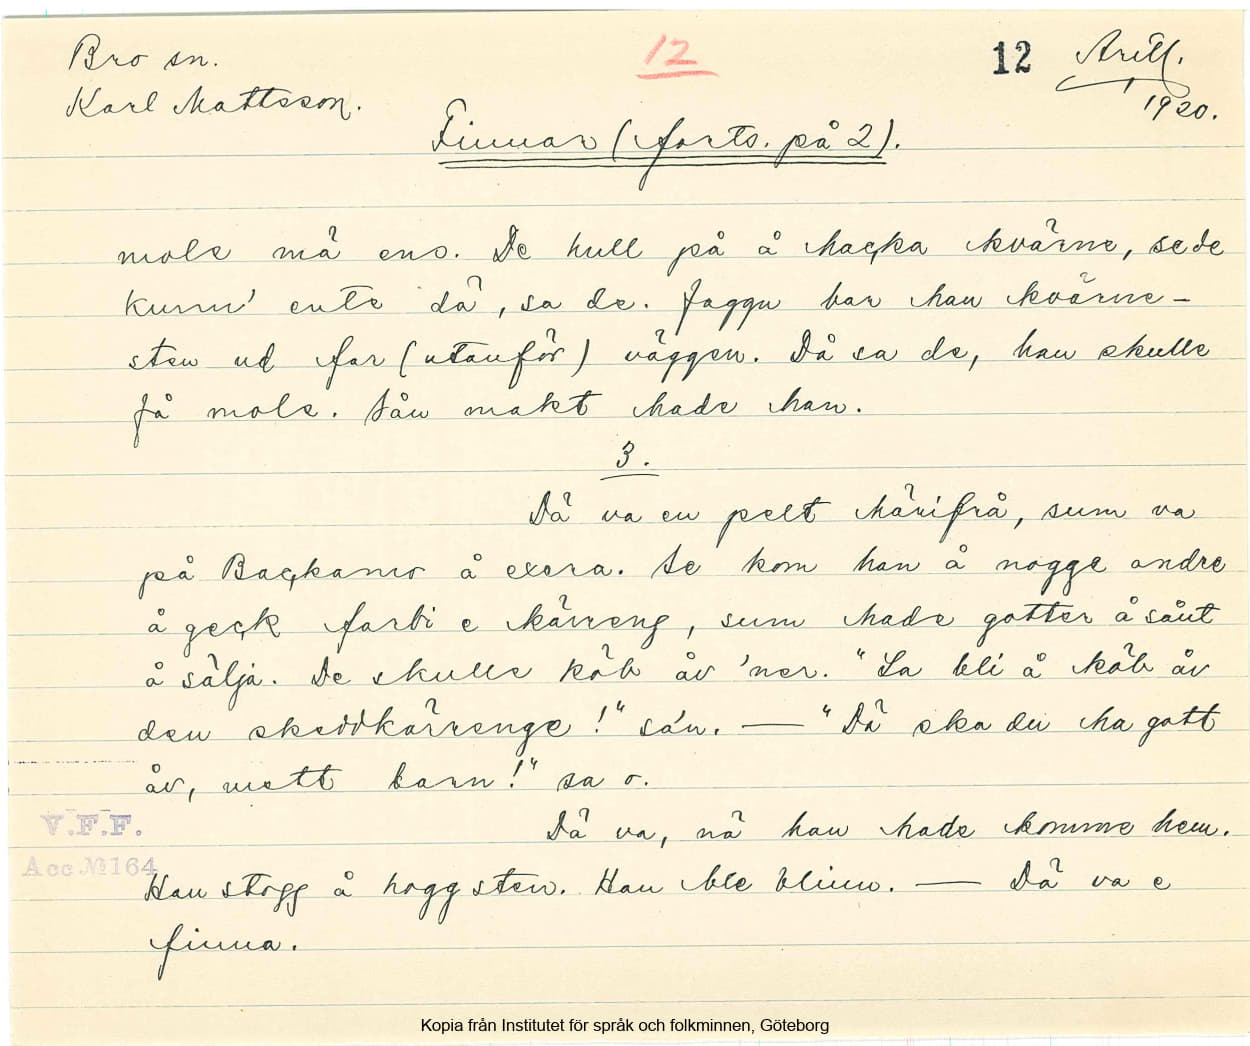 Bro sn.
12
12
Arill.
Karl Mattsson.
1920.
Finnar (forts. på 2).
mole mä ens. De hull på å hacka kvärne, se de
kunn' ente dä, sa de. Jaggu bar han kvärne-
sten ud far (utanför) väggen. Då sa de, han skulle
få mole. Sån makt hade han.
3.
Dä va en pelt härifrå, sum va
på Backamo å exera. Se kom han å nogge andre
å geck farbi e kärreng, sum hade gotter å sånt
å sälja. De skulle köb åv 'ner. "La bli å köb åv
den skeddkärrenge!" sa'n. — "Dä ska du ha gott
åv, mett barn!" sa o.
Dä va, nä han hade komme hem.
V.F.F.
Acc № 164
Han stogg å hogg sten. Han ble blinn. — Dä va e
finna.
Kopia från Institutet för språk och folkminnen, Göteborg